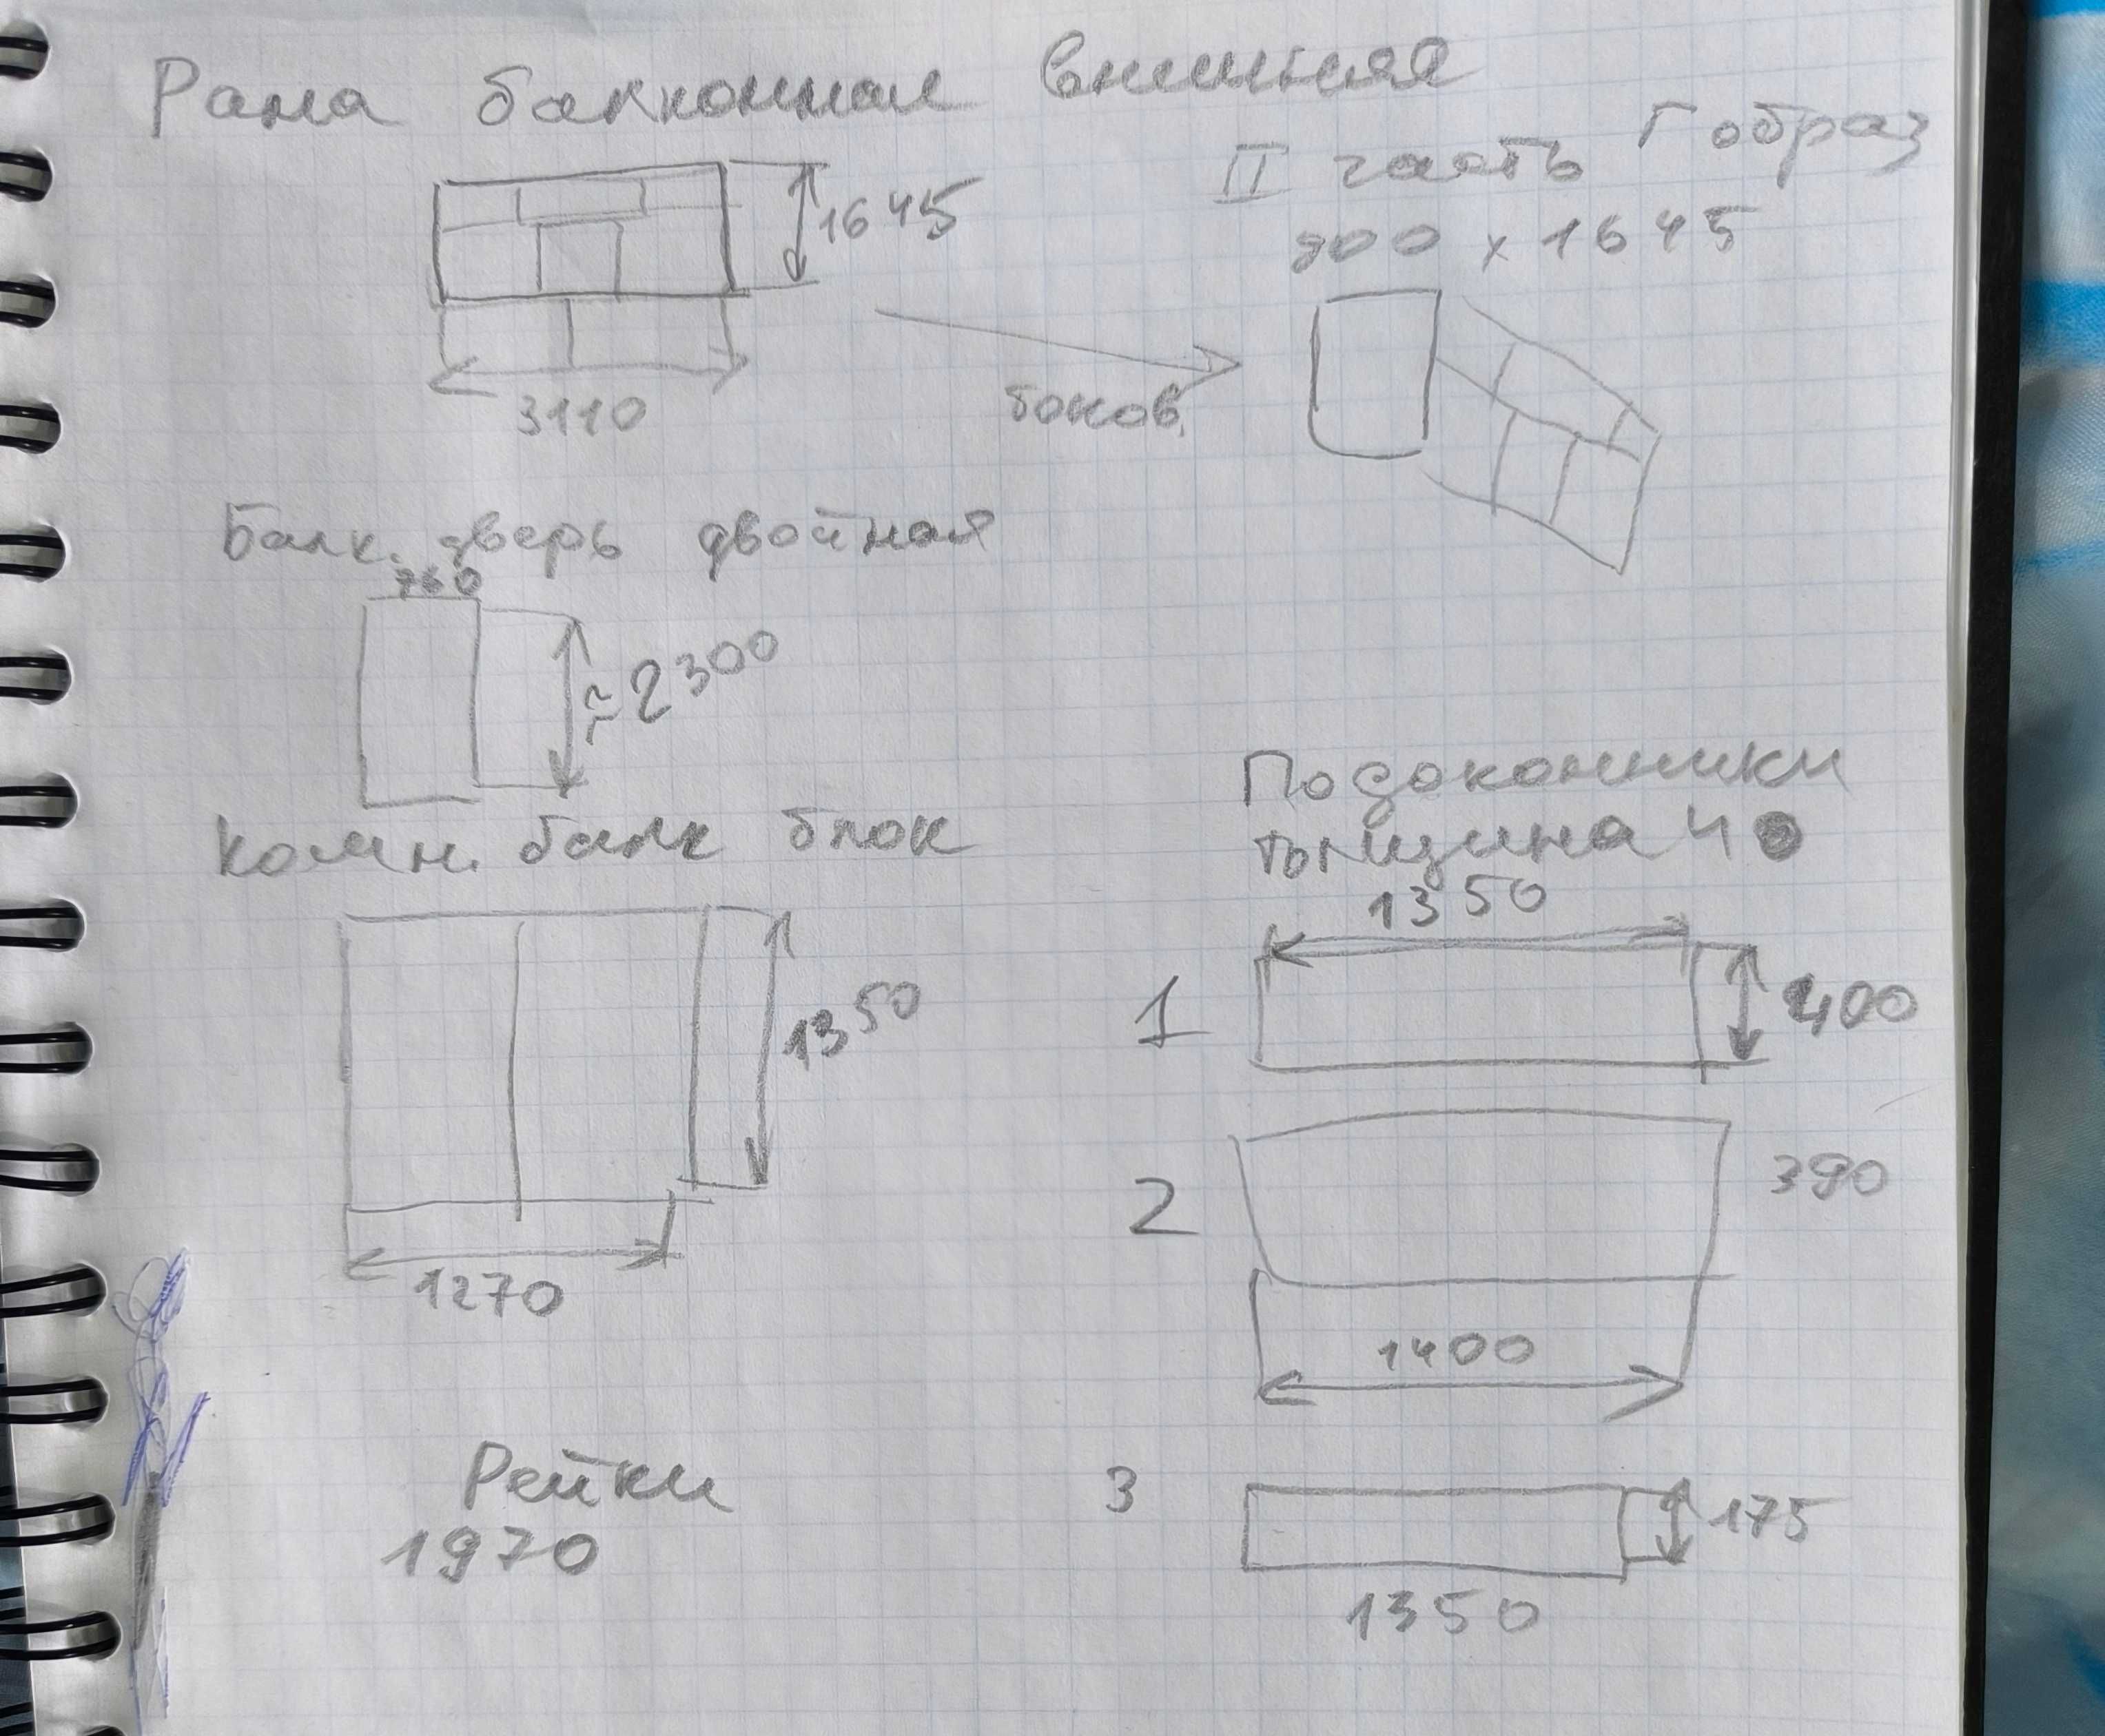 Рама балконная внешняя
1645
3110
боков.
II часть Гобраз
900 x 1645
Балк. дверь двойная
760
≈2300
Комн. балк блок
1350
1270
Рейки
1970
Подоконники
толщина 40
1350
1
400
2
390
1400
3
175
1350